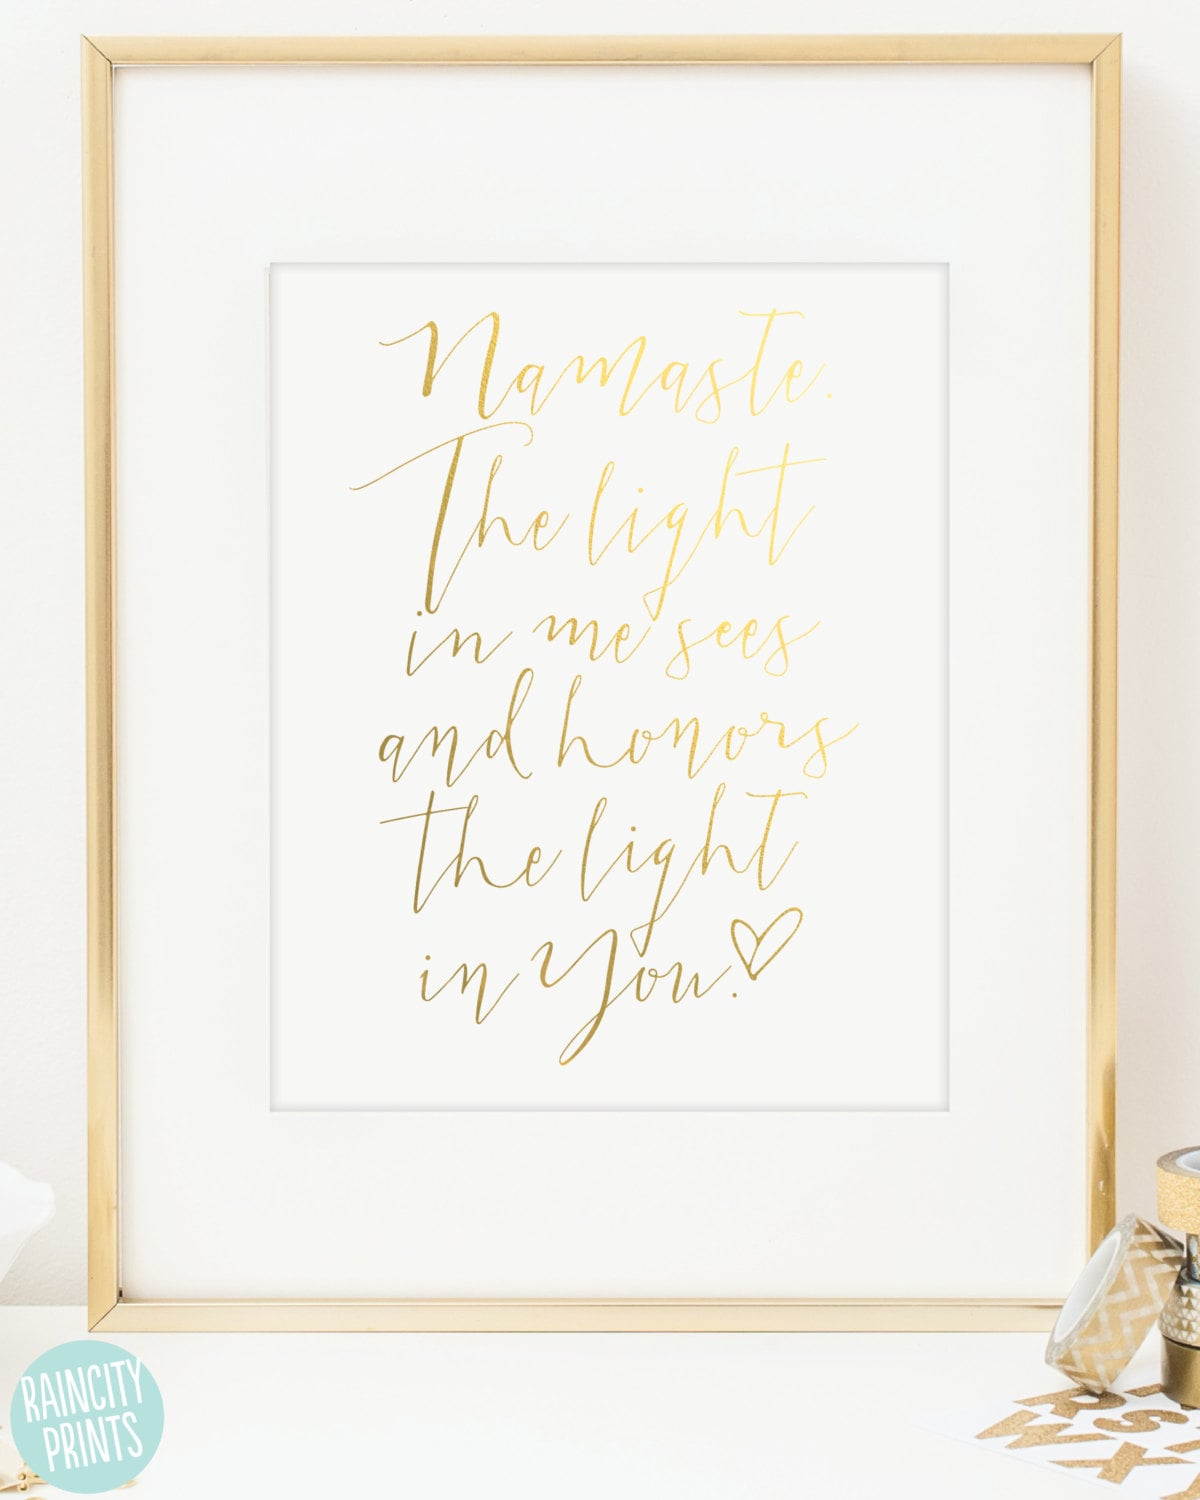 Namaste.
The light
in me sees
and honors
the light
in You.
RAINCITY
PRINTS
R S
W X